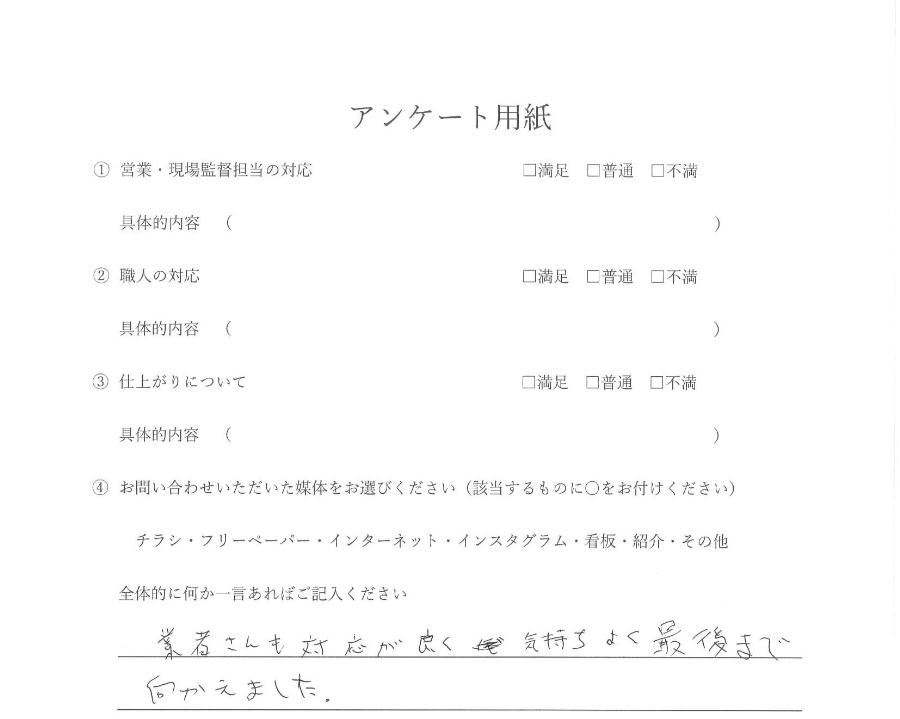 アンケート用紙
① 営業・現場監督担当の対応 □満足 □普通 □不満
具体的内容 （ ）
② 職人の対応 □満足 □普通 □不満
具体的内容 （ ）
③ 仕上がりについて □満足 □普通 □不満
具体的内容 （ ）
④ お問い合わせいただいた媒体をお選びください（該当するものに○をお付けください）
チラシ・フリーペーパー・インターネット・インスタグラム・看板・紹介・その他
全体的に何か一言あればご記入ください
業者さんも対応が良く 気持ちよく最後まで
向かえました.